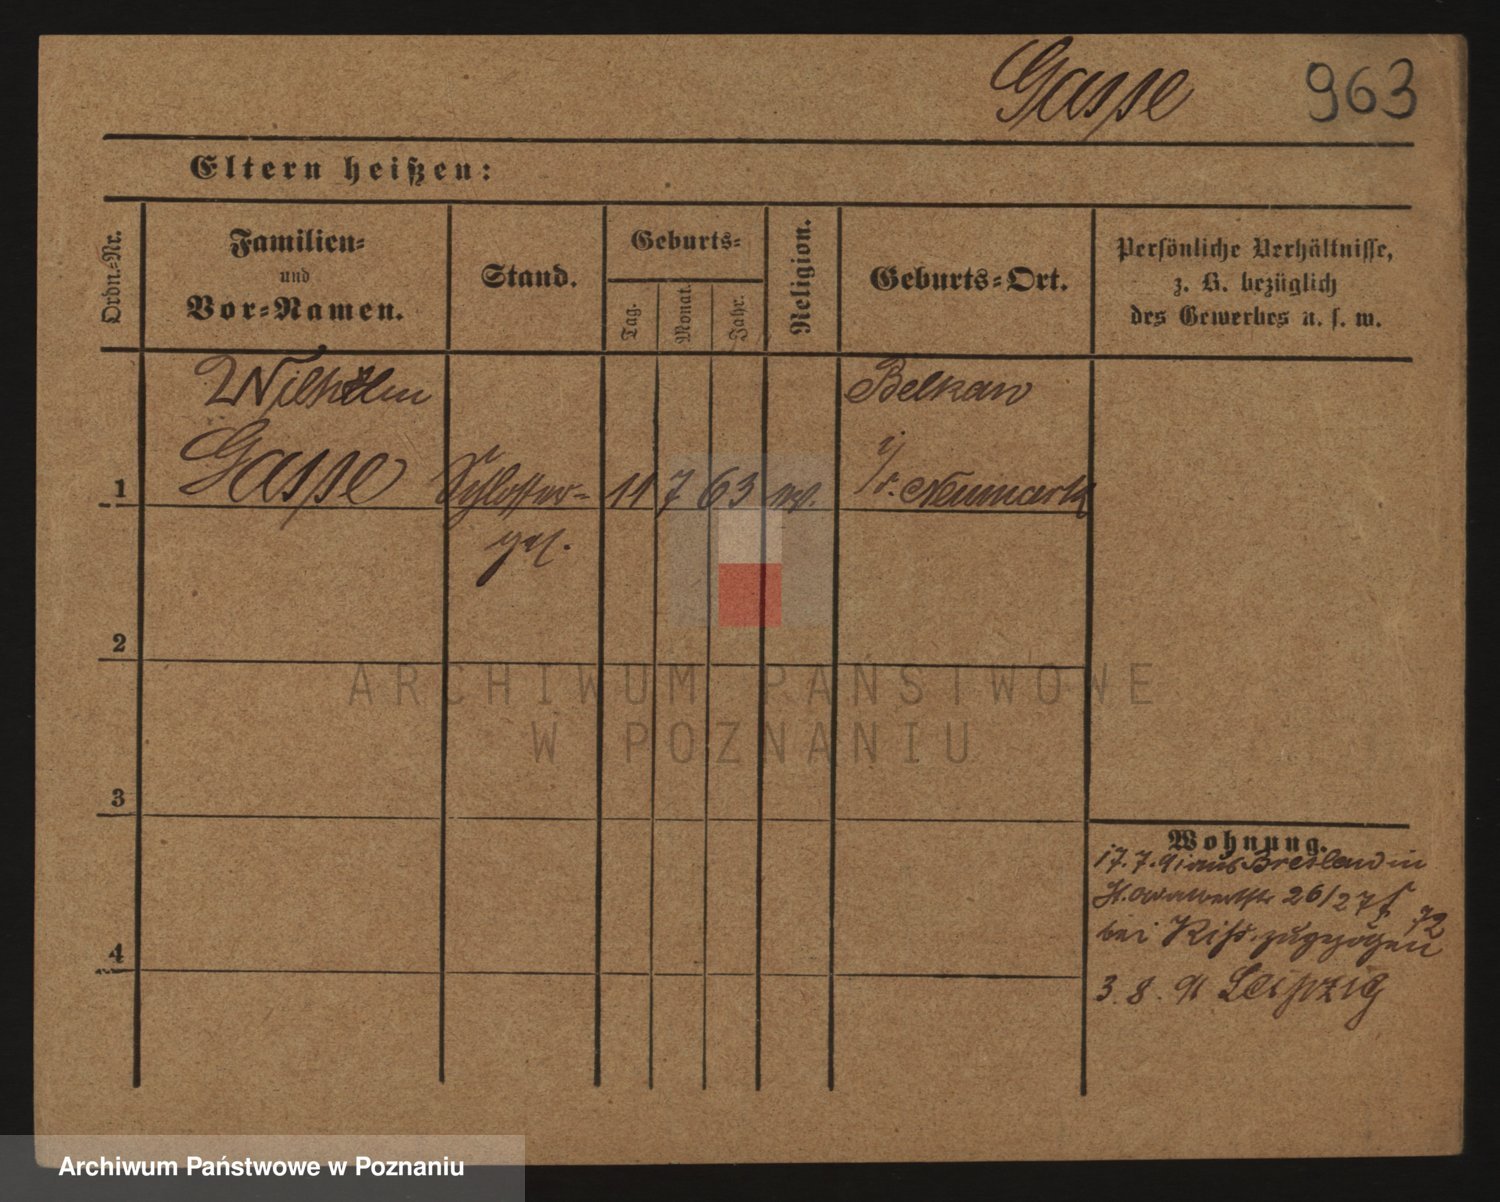 Gasse 963
Eltern heißen:
Ordn.=Nr.
Familien=
und
Vor=Namen.
Stand.
Geburts=
Tag.
Monat.
Jahr.
Religion.
Geburts=Ort.
Persönliche Verhältnisse,
z. B. bezüglich
des Gewerbes u. s. w.
Wilhelm
Gasse
1
Schlosser=
ges.
11 7 63
Belkau
Neumark
2
3
4
ARCHIWUM PAŃSTWOWE
W POZNANIU
Wohnung.
17. 7. 91 aus Breslau in
26/27
bei zugezogen
3. 8. 91 Leipzig
Archiwum Państwowe w Poznaniu